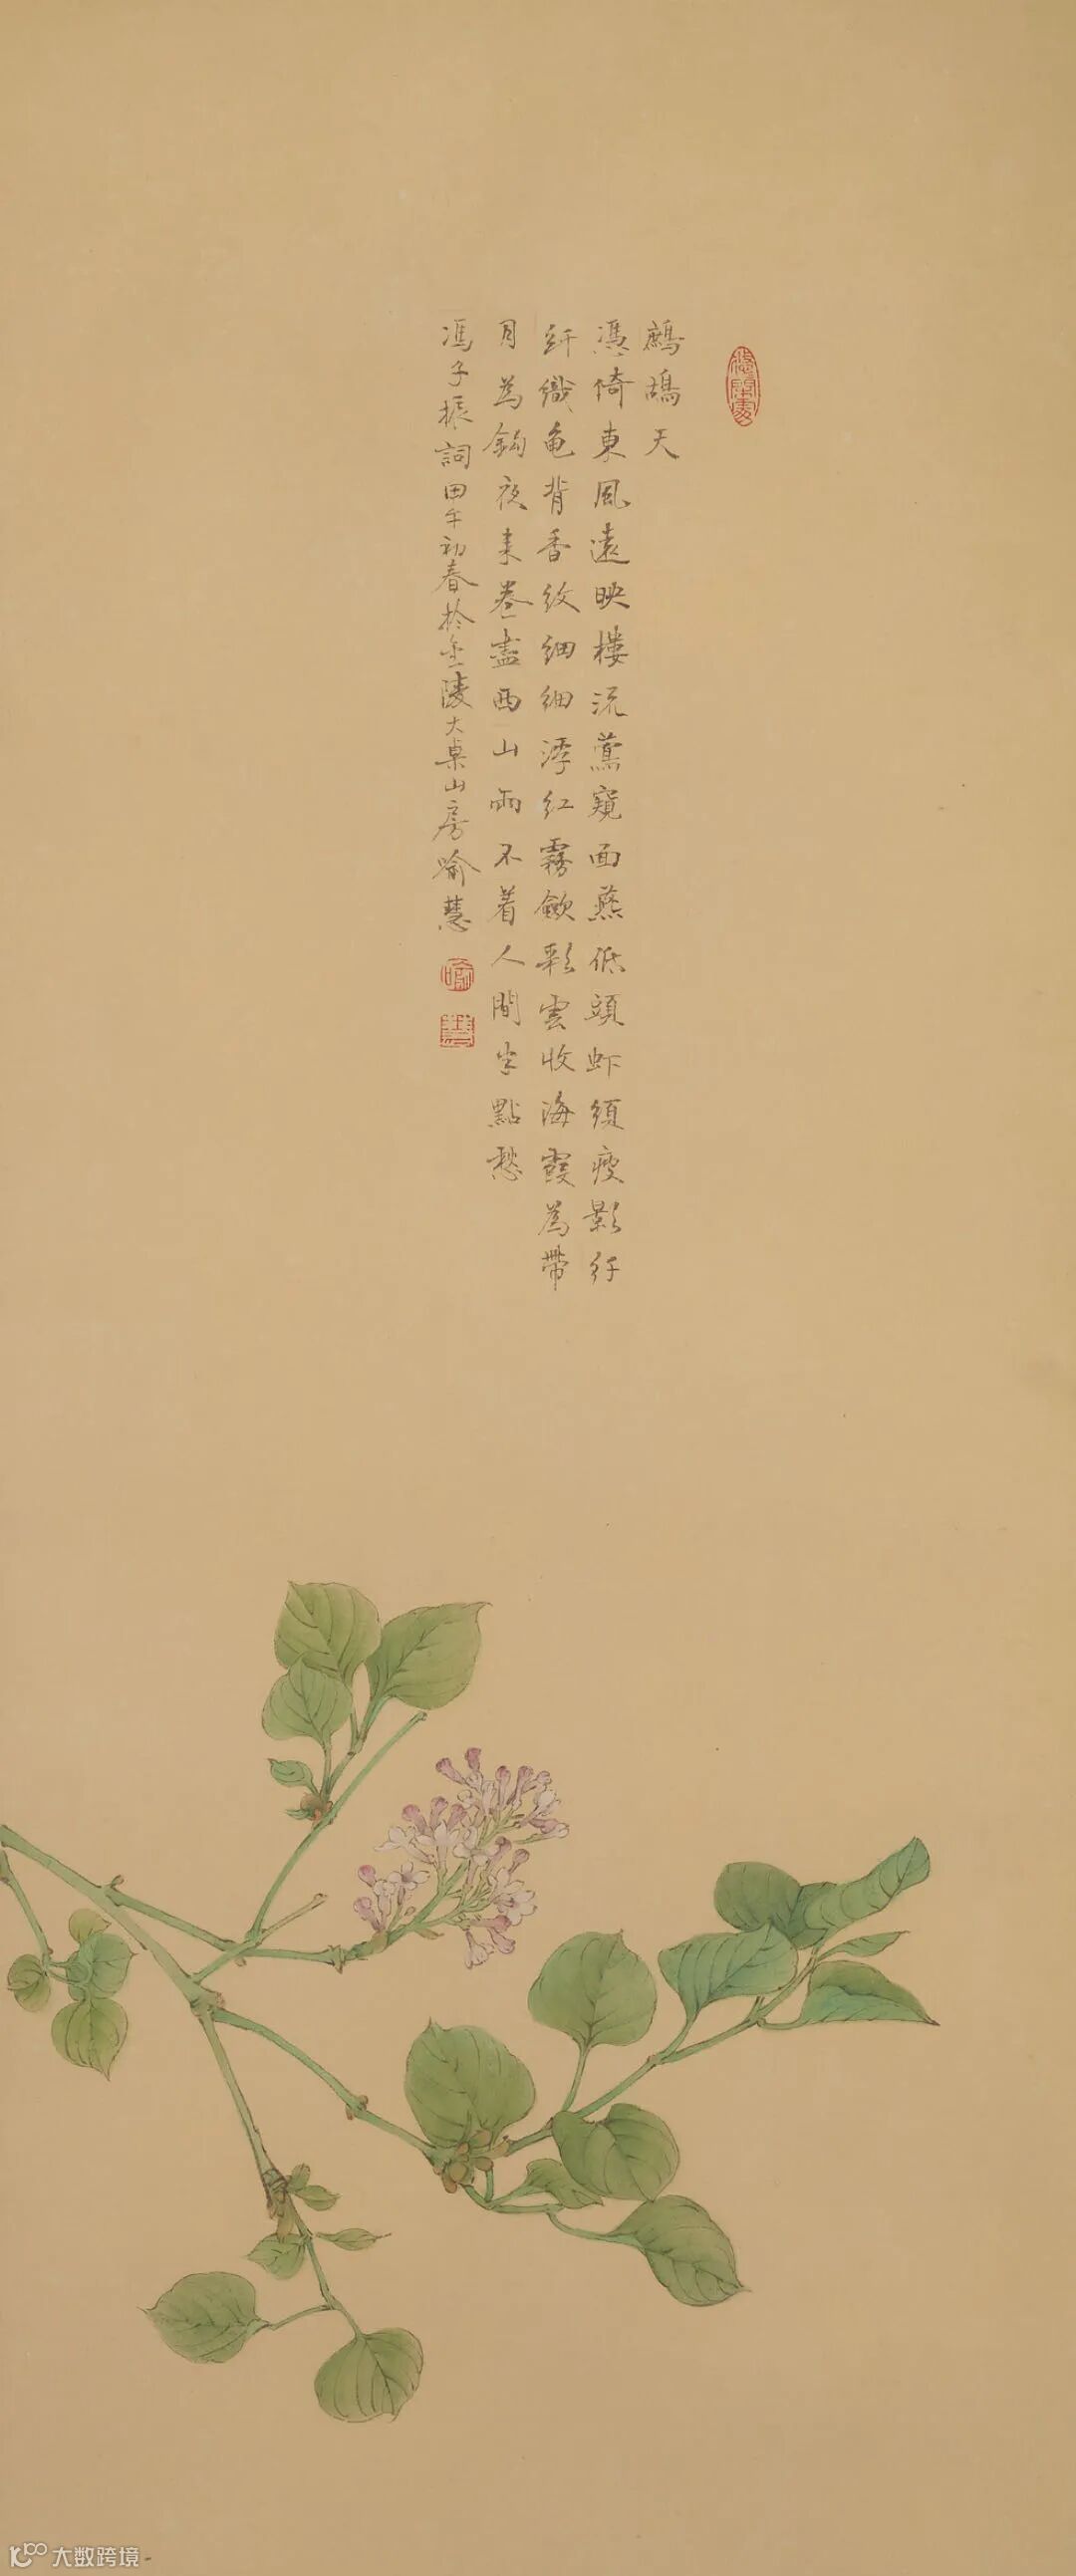 鷓鴣天
憑倚東風遠映樓流鶯窺面燕低頭蝦須瘦影纤
纤織龟背香纹細細浮红霧斂彩雲收海霞為帶
月為鈎夜来卷盡西山雨不着人間半點愁
馮子振詞甲午初春於金陵大桌山房喻慧
喻
慧
大数跨境